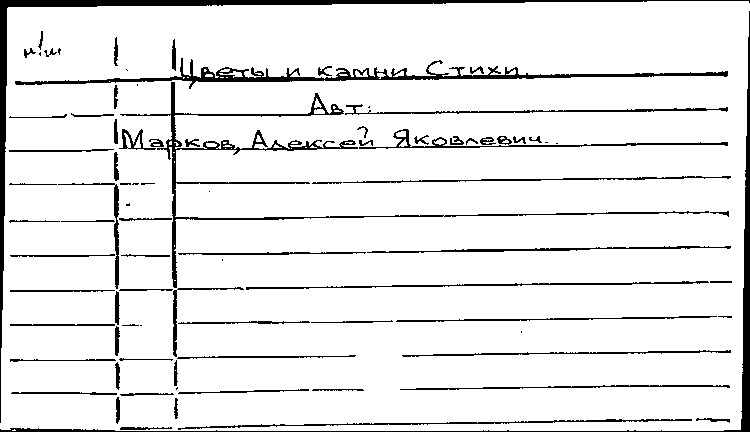 Цветы и камни. Стихи.
Авт:
Марков, Алексей Яковлевич.